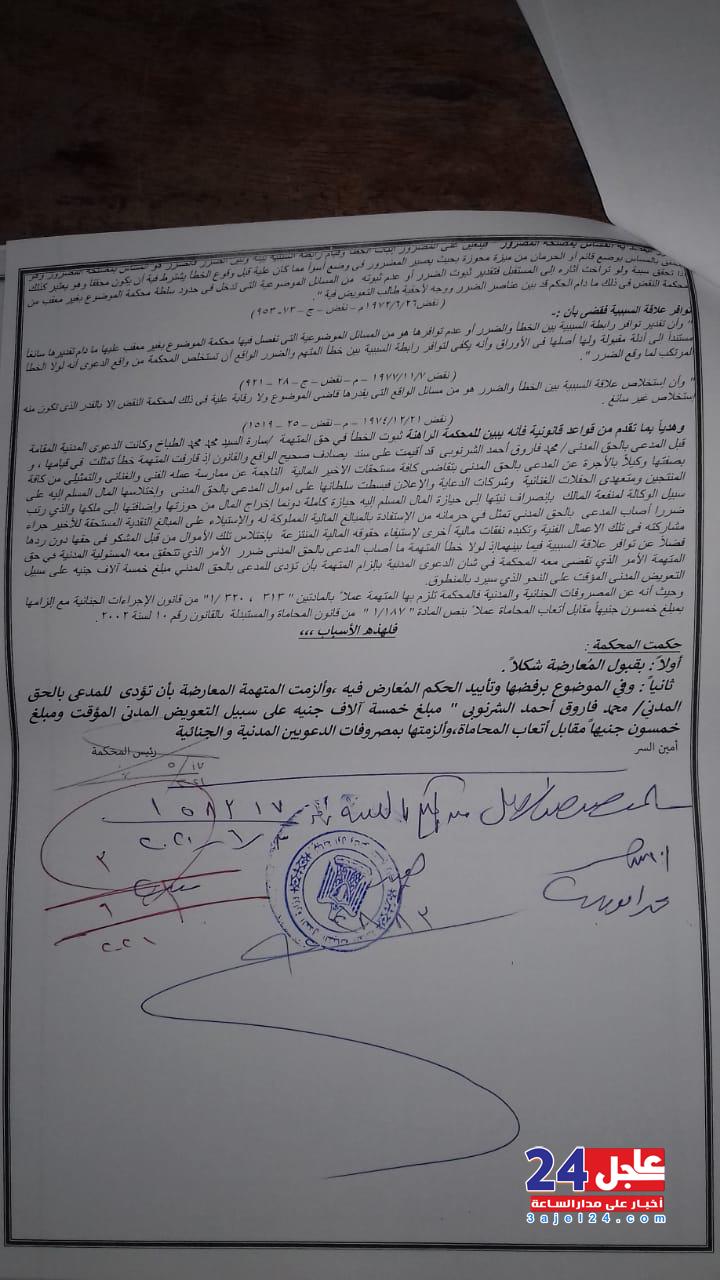 تتحقق بالمساس بوضع قائم أو الحرمان من ميزة محوزة بحيث يصير المضرور فى وضع أسوأ مما كان علية قبل وقوع الخطأ يشترط فية أن يكون محققا وهو يعتبر كذلك
إذا تحقق سببة ولو تراخت آثاره إلى المستقبل فتقدير ثبوت الضرر أو عدم ثبوته من المسائل الموضوعية التى تدخل فى حدود سلطة محكمة الموضوع بغير معقب من
محكمة النقض فى ذلك ما دام الحكم قد بين عناصر الضرر ووجه لأحقية طالب التعويض فية".
( نقض ١٩٧٢/٦/٢٦م – نقض – ج – ٧٣ – ٩٥٣)
توافر علاقة السببية فقضى بأن :-
" وأن تقدير توافر رابطة السببية بين الخطأ والضرر أو عدم توافرها هو من المسائل الموضوعية التى تفصل فيها محكمة الموضوع بغير معقب عليها ما دام تقديرها سائغا
مستنداً الى أدلة مقبولة ولها أصلها فى الأوراق وأنه يكفى لتوافر رابطة السببية بين خطأ المتهم والضرر الواقع أن تستخلص المحكمة من واقع الدعوى أنه لولا الخطأ
المرتكب لما وقع الضرر ".
( نقض ١٩٧٧/١١/٧ – م – نقض – ج – ٢٨ – ٩٢١)
" وأن إستخلاص علاقة السببية بين الخطأ والضرر هو من مسائل الواقع التى يقدرها قاضى الموضوع ولا رقابة علية فى ذلك لمحكمة النقض الا بالقدر الذى تكون منه
إستخلاص غير سائغ .
( نقض ١٩٧٤/١٢/٢١ – م – نقض – ٢٥ – ١٥١٩)
وهدياً بما تقدم من قواعد قانونية فأنه يبين للمحكمة الراهنة ثبوت الخطأ في حق المتهمة /سارة السيد محمد محمد الطباخ وكانت الدعوى المدنية المقامة
قبل المدعى بالحق المدنى / محمد فاروق أحمد الشرنوبى قد أقيمت على سند يصادف صحيح الواقع والقانون إذ قارفت المتهمة خطأ تمثلت في قيامها ، و
بصفتها وكيلاً بالأجرة عن المدعى بالحق المدني بتقاضى كافة مستحقات الاخير المالية الناجمة عن ممارسة عمله الفنى والغنائى والتمثيلى من كافة
المنتجين ومتعهدى الحفلات الغنائية وشركات الدعاية والإعلان فبسطت سلطاتها على اموال المدعى بالحق المدني وإختلاسها المال المسلم إليه على
سبيل الوكالة لمنفعة المالك بإنصراف نيتها إلى حيازة المال المسلم إليه حيازة كاملة دونما إخراج المال من حوزتها وإضافتها إلى ملكها والذي رتب
ضررا أصاب المدعى بالحق المدني تمثل في حرمانه من الإستفادة بالمبالغ المالية المملوكة له والإستيلاء على المبالغ النقدية المستحقة للأخير جراء
مشاركته فى تلك الاعمال الفنية وتكبده نفقات مالية أخرى لإستيفاء حقوقه المالية المنتزعة بإختلاس تلك الأموال من قبل المشكو فى حقها دون ردها
فضلاً عن توافر علاقة السببية فيما بينهماإذ لولا خطأ المتهمة ما أصاب المدعى بالحق المدنى ضرر الأمر الذي تتحقق معه المسئولية المدنية في حق
المتهمة الأمر الذي تقضى معه المحكمة في شان الدعوى المدنية بإلزام المتهمة بأن تؤدى للمدعى بالحق المدني مبلغ خمسة آلاف جنيه على سبيل
التعويض المدنى المؤقت على النحو الذي سيرد بالمنطوق.
وحيث أنه عن المصروفات الجنائية والمدنية فالمحكمة تلزم بها المتهمة عملاً بالمادتين " ٣١٣ ، ٣٢٠ /١" من قانون الإجراءات الجنائية مع إلزامها
بمبلغ خمسون جنيهاً مقابل أتعاب المحاماة عملاً بنص المادة " ١/١٨٧ " من قانون المحاماة والمستبدلة بالقانون رقم ١٠ لسنة ٢٠٠٢ .
فلهذه الأسباب ،،،
حكمت المحكمة :
أولاً: بقبول المُعارضة شكلاً.
ثانياً: وفي الموضوع برفضها وتأييد الحكم المُعارض فيه ،وألزمت المتهمة المعارضة بأن تؤدى للمدعى بالحق
المدني/ محمد فاروق أحمد الشرنوبى " مبلغ خمسة آلاف جنيه على سبيل التعويض المدنى المؤقت ومبلغ
خمسون جنيهاً مقابل أتعاب المحاماة،وألزمتها بمصروفات الدعويين المدنية والجنائية
أمين السر
رئيس المحكمة
٥/١٧
١٥٨٢١٧
٣
٦
٢٠٢١
عاجل 24
أخبار على مدار الساعة
3ajel24.com